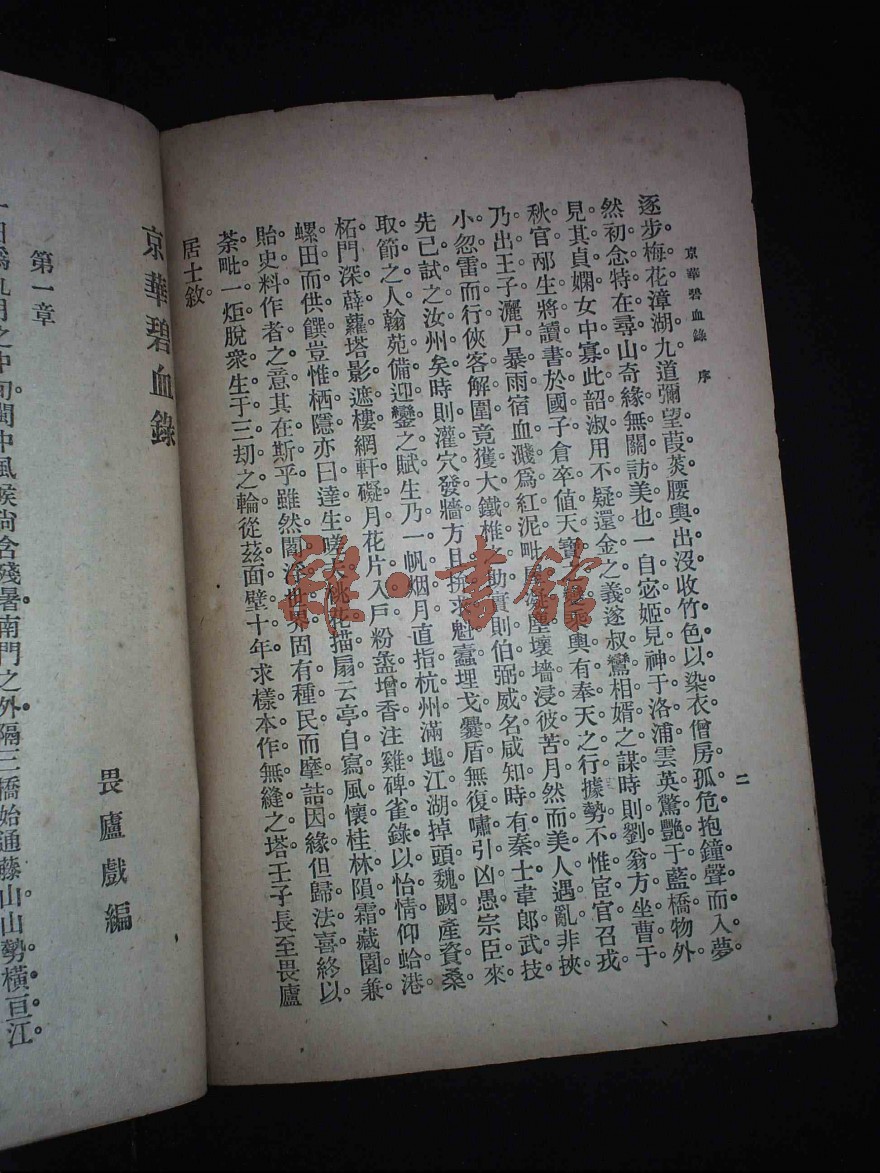 京華碧血錄 序
二
逐步梅花漳湖九道彌望葭菼腰輿出沒收竹色以染衣僧房孤危抱鐘聲而入夢
然初念特在尋山奇緣無關訪美也一自宓姬見神于洛浦雲英驚艷于藍橋物外
見其貞嫻女中寡此韶淑用不疑還金之義遂叔鸞相婿之謀時則劉翁方坐曹于
秋官邴生將讀書於國子倉卒值天寶之變乘輿有奉天之行據勢不惟宦官召戎
乃出王子灑尸暴雨宿血濺爲紅泥毗屋凝塵壞墻浸彼苦月然而美人遇亂非挾
小忽雷而行俠客解圍竟獲大鐵椎之助實則伯弼威名咸知時有秦士韋郎武技
先已試之汝州矣時則灌穴發牆方且捬求魁蠹埋戈爨盾無復嘯引凶愚宗臣來
取節之人翰苑備迎鑾之賦生乃一帆烟月直指杭州滿地江湖掉頭魏闕產資桑
柘門深薜蘿塔影遮樓網軒礙月花片入戶粉盝增香注雞碑雀錄以怡情仰蛤港
螺田而供饌豈惟栖隱亦曰達生嗟夫桃花描扇云亭自寫風懷桂林隕霜藏園兼
貽史料作者之意其在斯乎雖然閻浮世界固有種民而摩詰因緣但歸法喜終以
荼毗一炬脫衆生于三劫之輪從茲面壁十年求樣本作無縫之塔王子長至畏廬
居士敘
京華碧血錄
畏廬戲編
第一章
閩中風候尚含殘暑南門之外隔三橋始通藤山山勢橫亘江
雜·書館